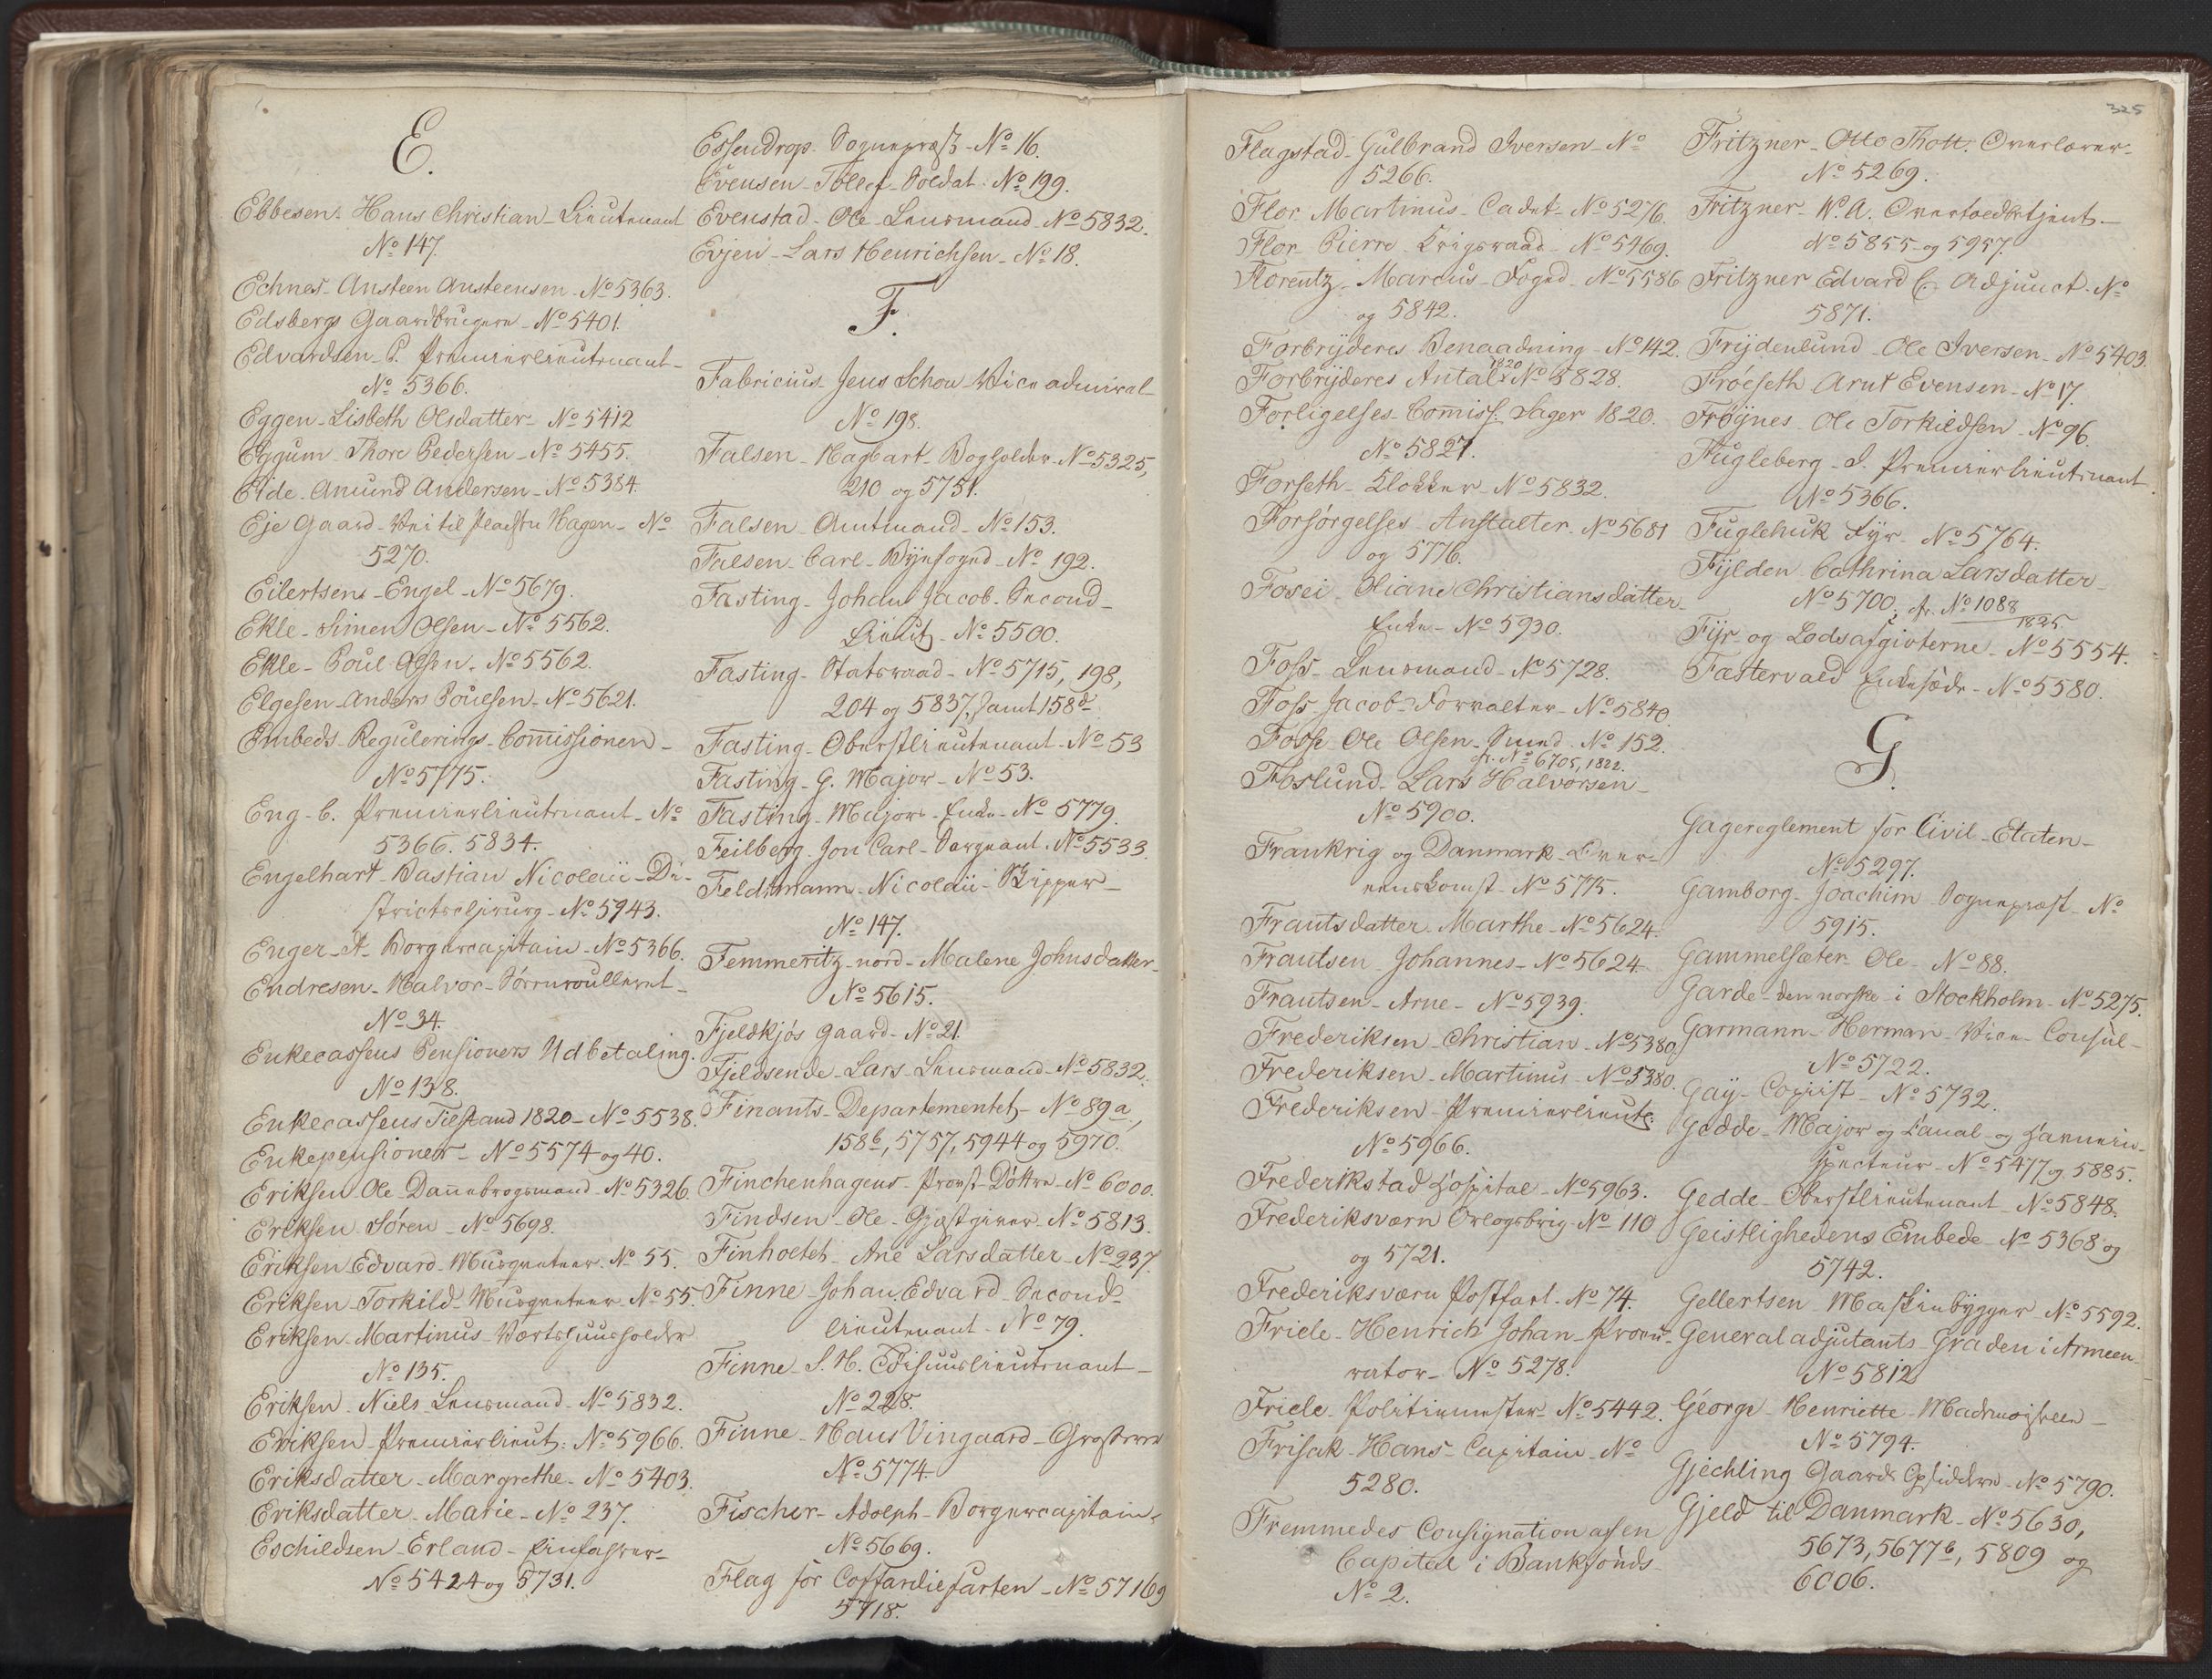 E.
Ebbesen. Hans Christian - Lieutenant
No 147.
Echnes - Ansteen Ansteensen - No 5363.
Edsbergs Gaardbrugere - No 5401.
Edvardsen - P. Premierlieutenant -
No 5366.
Eggen - Lisbeth Olsdatter - No 5412
Eggum Thore Pedersen - No 5455.
Eide - Amund Andersen - No 5384.
Eje Gaard - Vei til Hagen - No
5270.
Eilertsens - Engel - No 5679.
Ekle - Simen Olsen - No 5562.
Ekle - Poul Olsen - No 5562.
Elgesen - Anders Poulsen - No 5621.
Embeds - Regulerings - Commissionen -
No 5775.
Eng - C. Premierlieutenant - No
5366. 5834.
Engelhart - Bastian Nicolaii - Di-
strictschirurg - No 5943.
Enger - A - Borgercapitain - No 5366.
Endresen - Halvor -
No 34.
Enkecassens Pensioners Udbetaling.
No 138.
Enkecassens Tilstand 1820 - No 5538.
Enkepensioner - No 5574 og 40.
Eriksen - Ole - Dannebrogsmand - No 5326.
Eriksen - Søren - No 5698.
Eriksen Edvard - Musqueteer - No 55.
Eriksen - Torkild - Musqueteer - No 55.
Eriksen - Martinus - Værtshuusholder
No 135.
Eriksen - Niels - Lensmand - No 5832.
Eriksen - Premierlieut: No 5966.
Eriksdatter - Margrethe - No 5403.
Eriksdatter - Marie - No 237.
Eschildsen - Erland -
No 5424 og 5731.
Essendrop - Sognepræst - No 16.
Evensen - Tollef - Soldat - No 199.
Evenstad - Ole - Lensmand - No 5832.
Evjen - Lars Henrichsen - No 18.
F.
Fabricius - Jens Schou Vice admiral
No 198.
Falsen - Hagbart - Bogholder - No 5325,
210 og 5751.
Falsen - Amtmand - No 153.
Falsen - Carl - Byefoged - No 192.
Fasting - Johan Jacob - Second -
Lieut - No 5500.
Fasting - Statsraad - No 5715, 198,
204 og 5837, samt 158d
Fasting - Oberstlieutenant - No 53
Fasting - G. Major - No 53.
Fasting - Majors - Enke - No 5779.
Feilberg - Jon Carl - Sergeant - No 5533.
Feldtmann - Nicolaii - Skipper -
No 147.
Femmeritz - nord - Malene Johnsdatter -
No 5615.
Fjeldkjøs Gaard - No 21.
Fjeldsende - Lars - Lensmand - No 5832.
Finants - Departementet - No 89a,
158b, 5757, 5944 og 5970.
Finchenhagens - Provst - Døttre - No 6000.
Findsen - Ole - Gjæstgiver - No 5813.
Finholtet - Ane Larsdatter - No 237.
Finne - Johan Edvard - Second -
lieutenant - No 79.
Finne - S. H. lieutenant -
No 228.
Finne - Hans Vingaard -
No 5774.
Fischer - Adolph - Borgercapitain -
No 5669.
Flag for Coffardiefarten - No 5716 og
5718.
325
Flagstad - Gulbrand Iversen - No
5266.
Flor - Martinus - Cadet - No 5276.
Flor - Pierre - Krigsraad - No 5469.
Florentz - Marcus - Foged - No 5586
og 5842.
Forbryderes Benaadning - No 142.
Forbryderes Antal 1820 No 5828.
Forligelses - Commiss: Sager 1820.
No 5827.
Forseth - Klokker - No 5832.
Forsørgelses - Anstalter - No 5681
og 5776.
Fosei - Oliane Christiansdatter -
Enke - No 5930.
Foss - Lensmand - No 5728.
Foss Jacob - Forvalter - No 5840.
Fosse - Ole Olsen - Smed - No 152.
cfr. No 6705, 1822.
Foslund - Lars Halvorsen -
No 5900.
Frankrig og Danmark - Over-
eenskomst - No 5775.
Frantsdatter - Marthe - No 5624.
Frantsen - Johannes - No 5624
Frantsen - Arne - No 5939.
Frederiksen - Christian - No 5380.
Frederiksen - Martinus - No 5380.
Frederiksen - Premierlieut:
No 5966.
Frederikstad Hospital - No 5963.
Frederiksværn Orlogsbrig - No 110
og 5721.
Frederiksværn Postfart - No 74.
Friele - Henrich Johan - Procu-
rator - No 5278.
Friele - Politiemester - No 5442.
Frisak - Hans - Capitain - No
5280.
Fremmedes Consignation af en
Capital i Bankfonds -
No 2.
Fritzner - Otto Thott. Overlærer -
No 5269.
Fritzner - N. A. Overtoldbetjent -
No 5855 og 5957.
Fritzner Edvard C. Adjunct - No
5871.
Frydenlund - Ole Iversen - No 5403.
Frøeseth Arnt Evensen - No 17.
Frøynes - Ole Torkildsen - No 96.
Fugleberg - I. Premierlieutenant
No 5366.
Fuglehuk Fyr - No 5764.
Fylden - Cathrina Larsdatter -
No 5700, cfr. No 1088
1825
Fyr og Lodsafgivterne - No 5554.
Fæstervald Enkesæde - No 5580.
G.
Gagereglement for Civil - Etaten -
No 5297.
Gamborg - Joachim - Sognepræst - No
5915.
Gammelsæter - Ole - No 88.
Garde - den norske - i Stockholm - No 5275.
Garmann - Herman - Vice - Consul -
No 5722.
Gay - Copiist - No 5732.
Gedde - Major og Canal - og Havnein-
specteur - No 5477 og 5885.
Gedde - Oberstlieutenant - No 5848.
Geistlighedens Embede - No 5368 og
5742.
Gellertsen - Maskinbygger - No 5592.
Generaladjutants - Graden i Armeen -
No 5812
George - Henriette - Madmoiselle -
No 5794.
Gjechling Gaards Opsiddere - No 5790.
Gjeld til Danmark - No 5630,
5673, 5677b, 5809 og
6006.